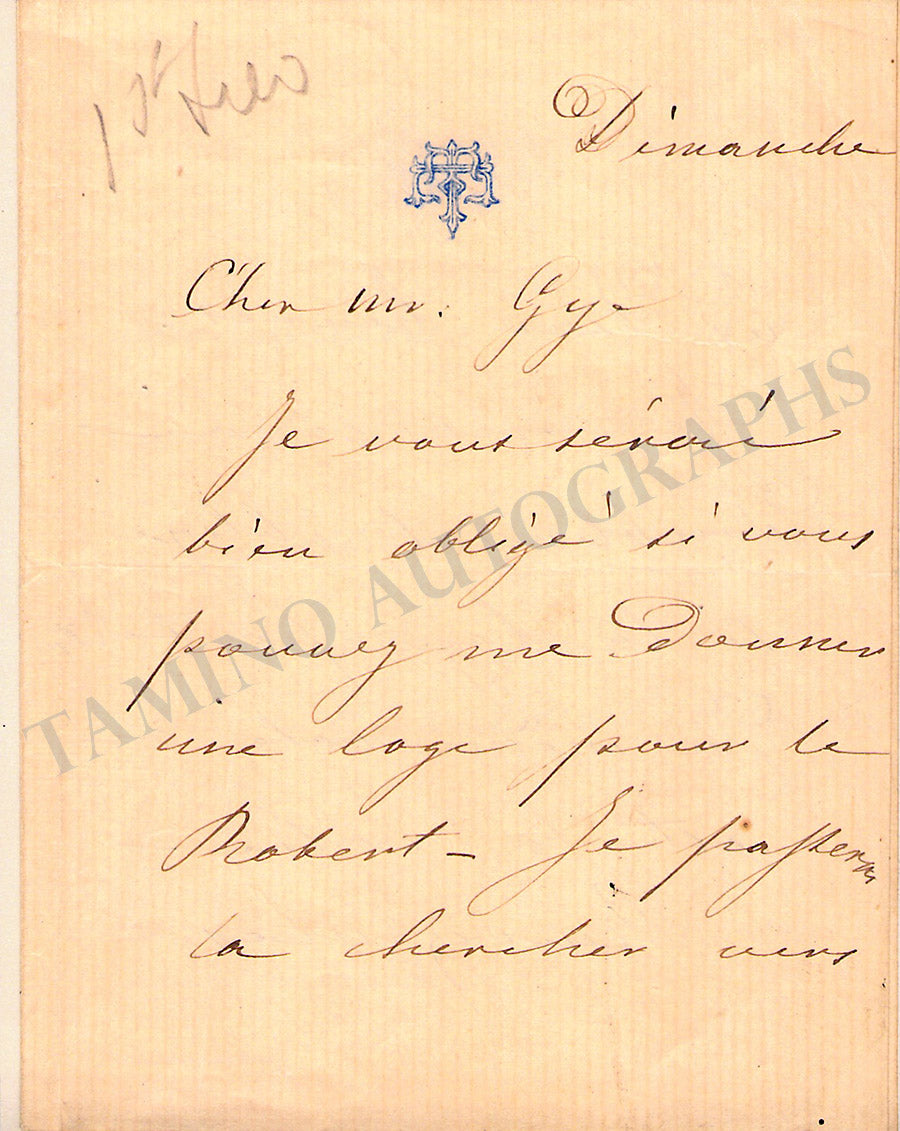 1st
Dimanche
Cher Mr. Gye
Je vous sérai
bien obligé si vous
pouvez me Donner
une loge pour le
Robert – Je passerai
la chercher vers
TAMINO AUTOGRAPHS